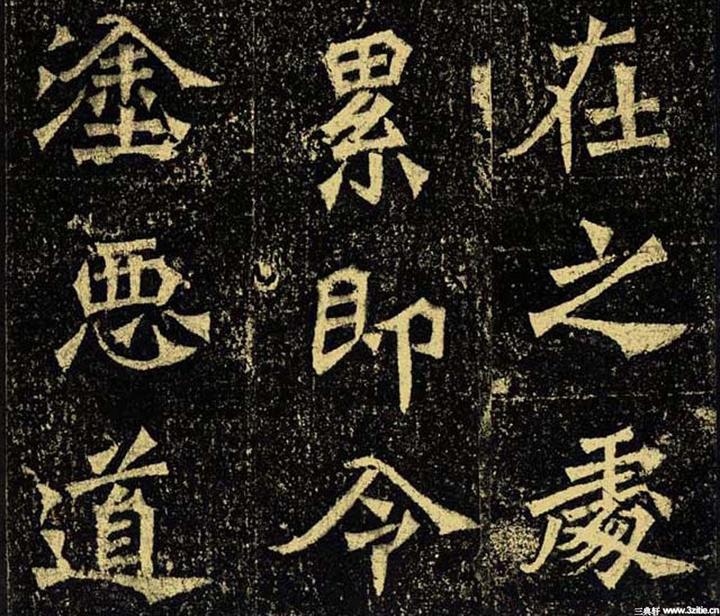 在之處
累即令
塗惡道
三典轩 www.3zitie.cn